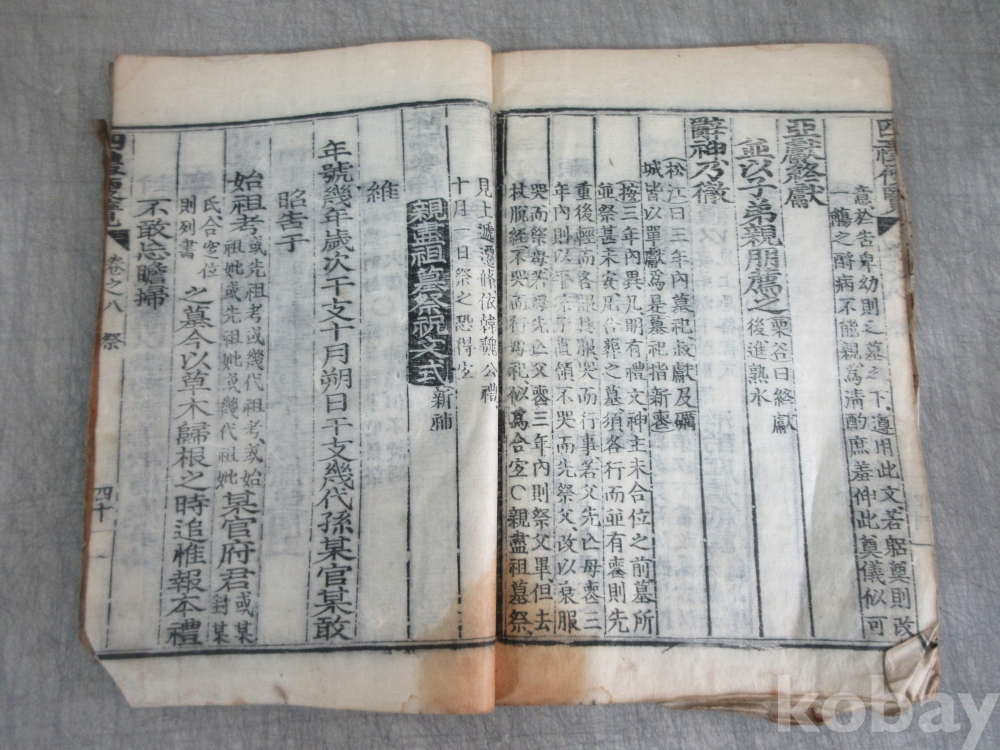 四禮便覽
意於告卑幼則之墓之下遵用此文若躬奠則改
一觴之酹病不能親爲淸酌庶羞伸此奠儀似可
亞獻終獻
並以子弟親朋薦之 栗谷曰終獻
後進熟水
辭神乃徹
松江曰三年內墓祀敍獻及礪
城皆以單獻爲是墓祀指新喪
按三年內異几明有禮文神主未合位之前墓所
並祭甚未安凡合葬之墓須各行而並有喪則先
重後輕而各服其服哭而行事若父先亡母喪三
年內則以平涼子直領不哭而先祭父改以衰服
哭而祭母若母先亡父喪三年內則祭父畢但去
杖脫絰不哭而行母祀似爲合宜○親盡祖墓祭
見上遞遷條依韓魏公禮
十月一日祭之恐得宜
親盡祖墓祭祝文式 新補
維
年號幾年歲次干支十月朔日干支幾代孫某官某敢
昭告于
始祖考 或先祖考或幾代祖考或始
祖妣或先祖妣或幾代祖妣
某官府君 或某
封某
氏合窆位
則列書
之墓今以草木歸根之時追惟報本禮
不敢忘瞻掃
四禮便覽 卷之八 祭 四十
kobay